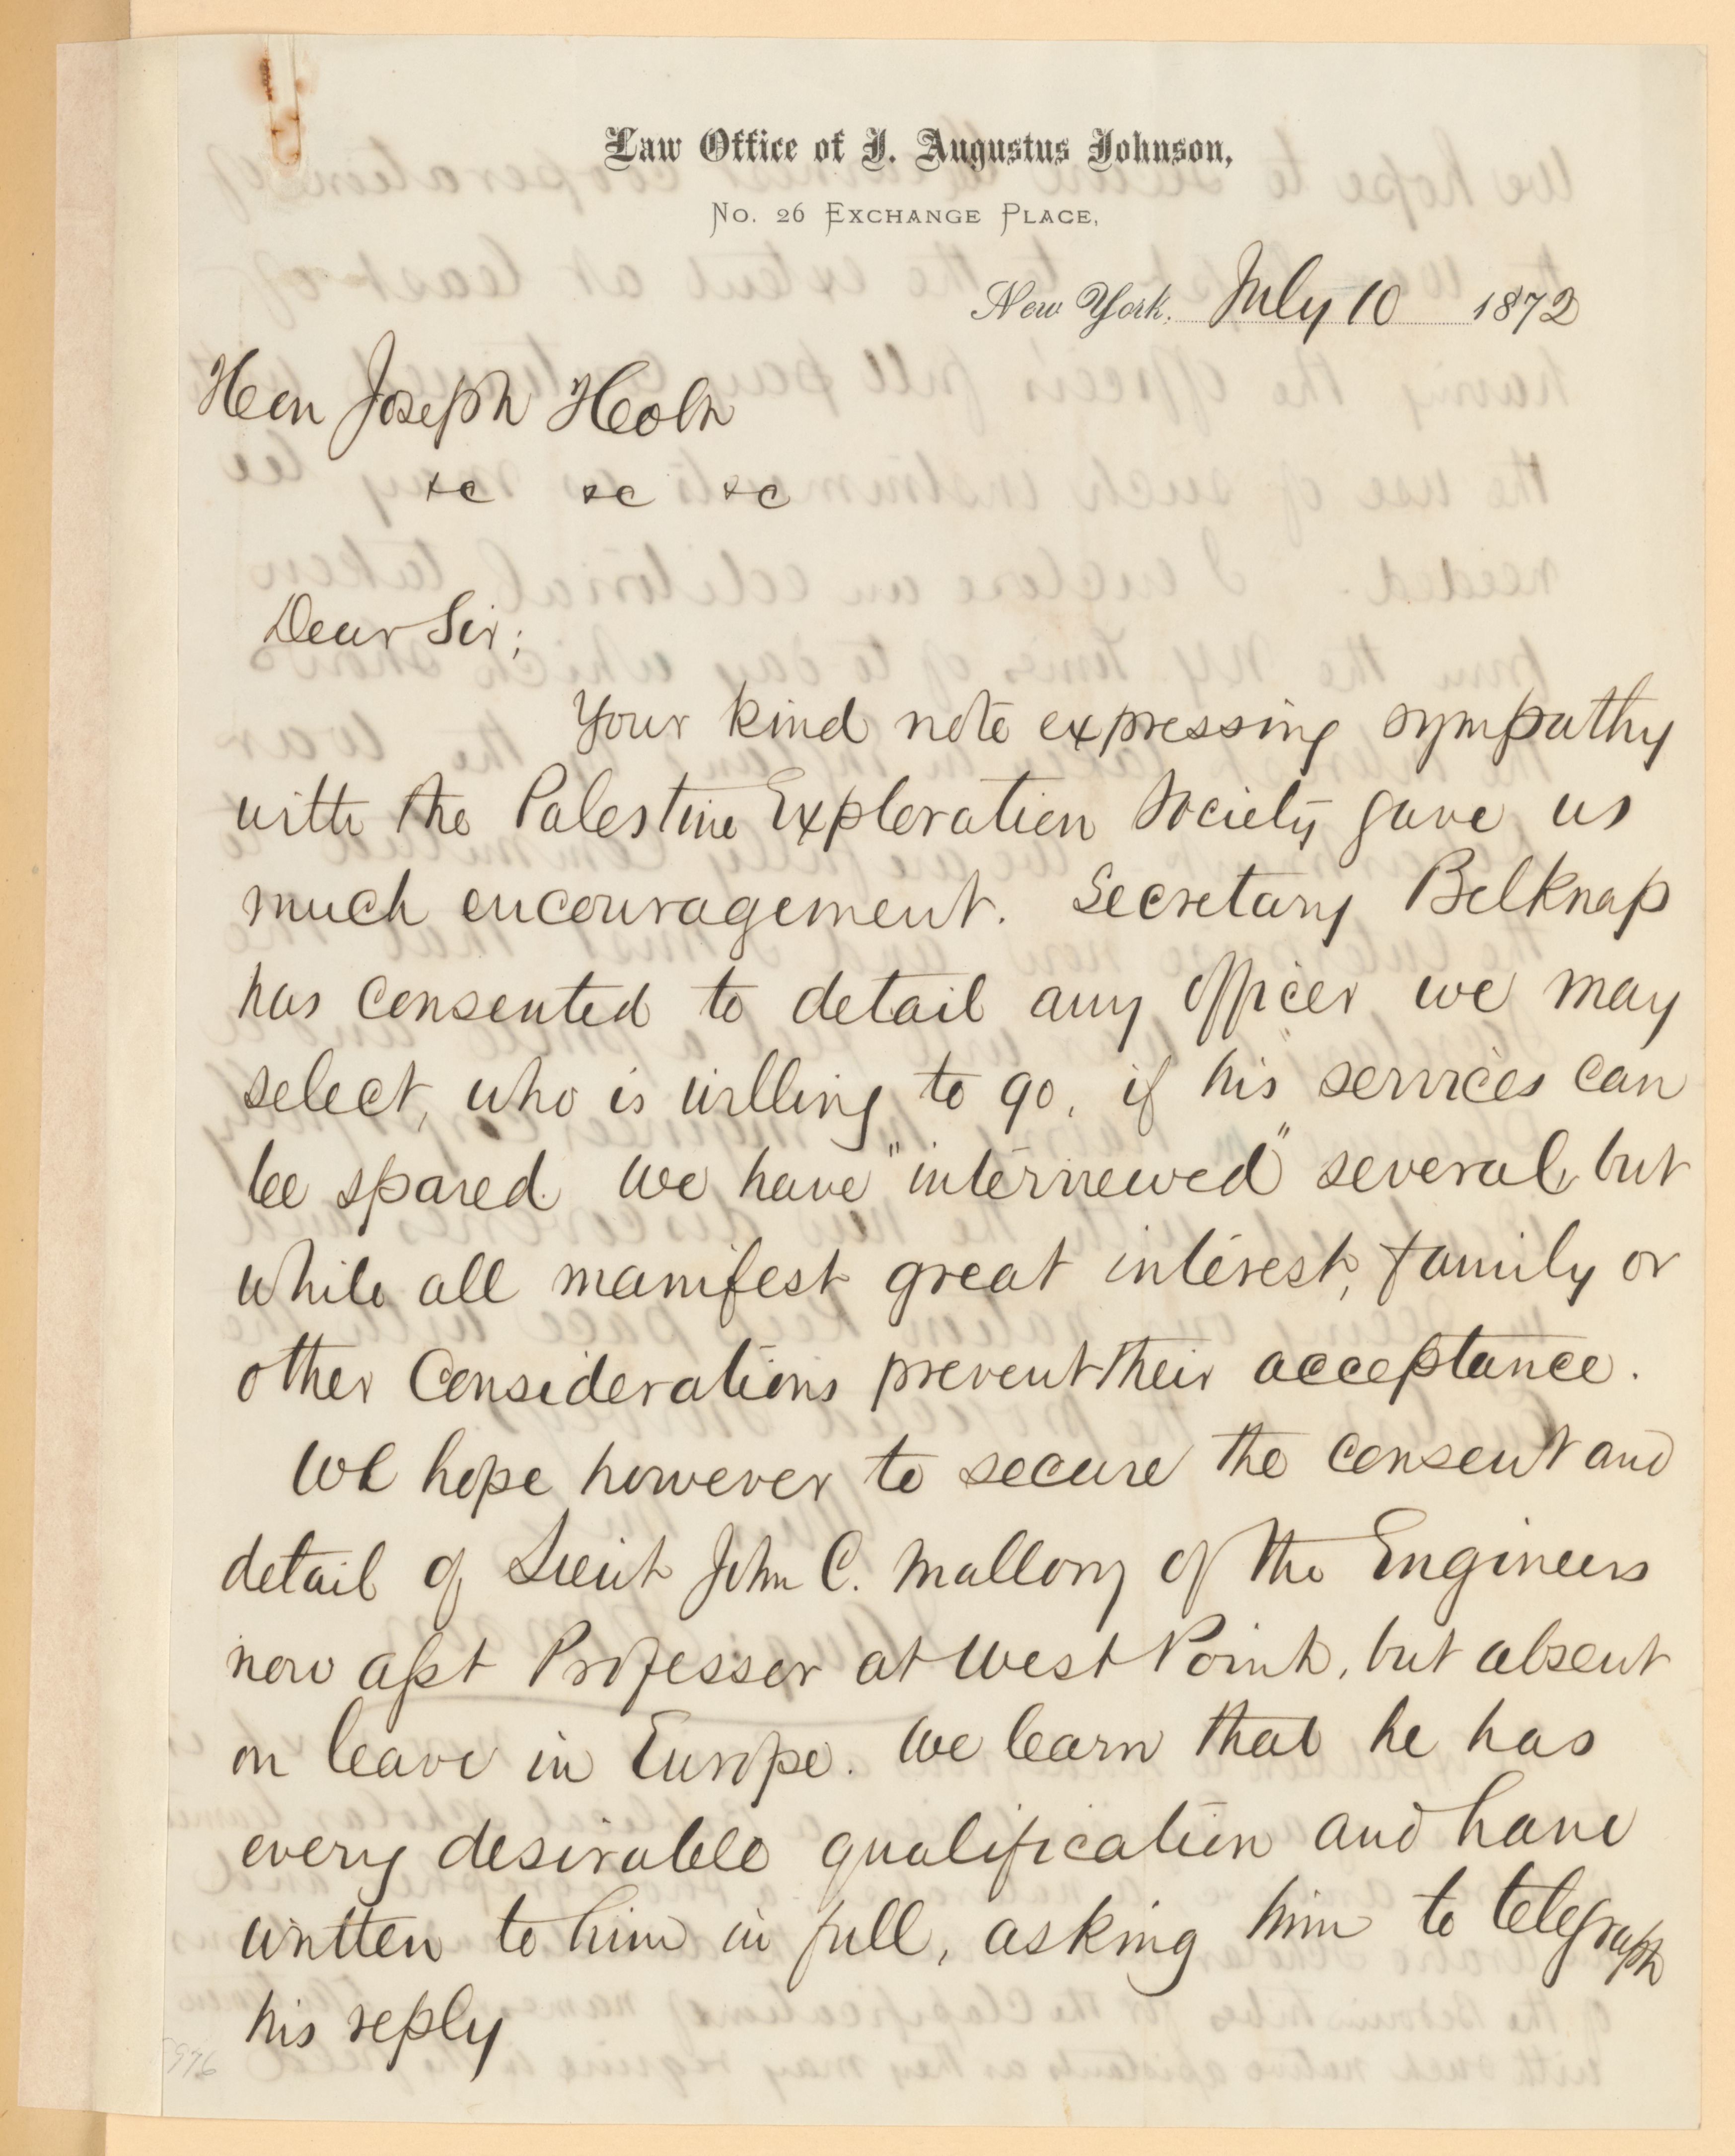 Law Office of J. Augustus Johnson,
No. 26 Exchange Place,
New York, July 10 1872
Hon Joseph Holt
&c &c &c
Dear Sir;
Your kind note expressing sympathy
with the Palestine Exploration Society gave us
much encouragement. Secretary Belknap
has consented to detail any officer we may
select, who is willing to go, if his services can
be spared. We have "interviewed" several, but
while all manifest great interest, family or
other considerations prevent their acceptance.
We hope however to secure the consent and
detail of Lieut John C. Mallory of the Engineers
now asst Professor at West Point, but absent
on leave in Europe. We learn that he has
every desirable qualification and have
written to him in full, asking him to telegraph
his reply